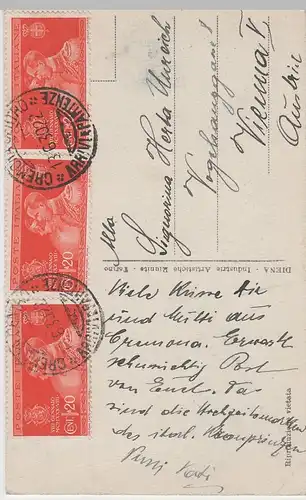 POSTE ITALIANE
CENT. 20
POSTE ITALIANE
CENT. 20
POSTE ITALIANE
CENT. 20
ARRIVI E PARTENZE
Alla
Signorina Herta
Vogelsanggasse
Vienna V
Austria
DIENA - Industrie Artistiche Riunite - Torino
Viele Küsse Dir
und Mutti aus
Cremona. Erwarte
sehnsüchtig Post
von Euch. Das
sind die Hochzeitsmarken
des ital. Kronprinzen
Riproduzione vietata